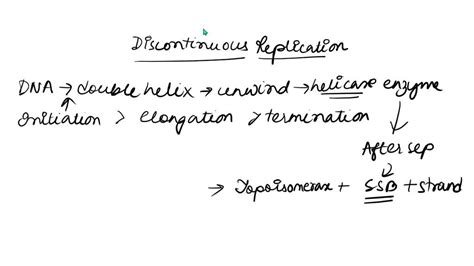 Discontinuous Replication
DNA → double helix → unwind → helicase enzyme
Initiation > elongation > termination
After sep
→ Topoisomerax + SSB + strand